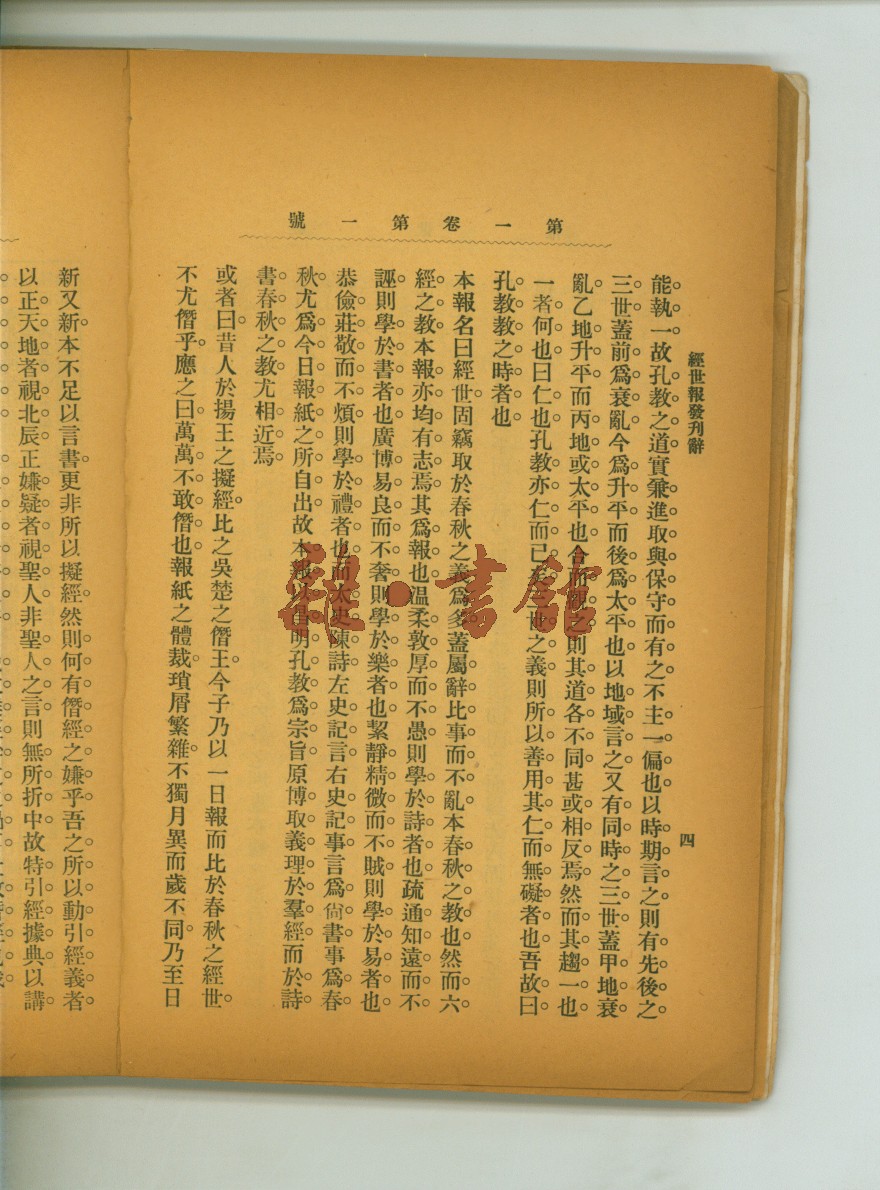 第一卷第一號
經世報發刊辭
四
能執一故孔教之道實兼進取與保守而有之不主一偏也以時期言之則有先後之
三世蓋前爲衰亂今爲升平而後爲太平也以地域言之又有同時之三世蓋甲地衰
亂乙地升平而丙地或太平也合而觀之則其道各不同甚或相反焉然而其趨一也
一者何也曰仁也孔教亦仁而已矣三世之義則所以善用其仁而無礙者也吾故曰
孔教教之時者也
本報名曰經世固竊取於春秋之義爲多蓋屬辭比事而不亂本春秋之教也然而六
經之教本報亦均有志焉其爲報也温柔敦厚而不愚則學於詩者也疏通知遠而不
誣則學於書者也廣博易良而不奢則學於樂者也絜靜精微而不賊則學於易者也
恭儉莊敬而不煩則學於禮者也而太史陳詩左史記言右史記事言爲尙書事爲春
秋尤爲今日報紙之所自出故本報以昌明孔教爲宗旨原博取義理於羣經而於詩
書春秋之教尤相近焉
或者曰昔人於揚王之擬經比之吳楚之僭王今子乃以一日報而比於春秋之經世
不尤僭乎應之曰萬萬不敢僭也報紙之體裁瑣屑繁雜不獨月異而歲不同乃至日
新又新本不足以言書更非所以擬經然則何有僭經之嫌乎吾之所以動引經義者
以正天地者視北辰正嫌疑者視聖人非聖人之言則無所折中故特引經據典以講
書館